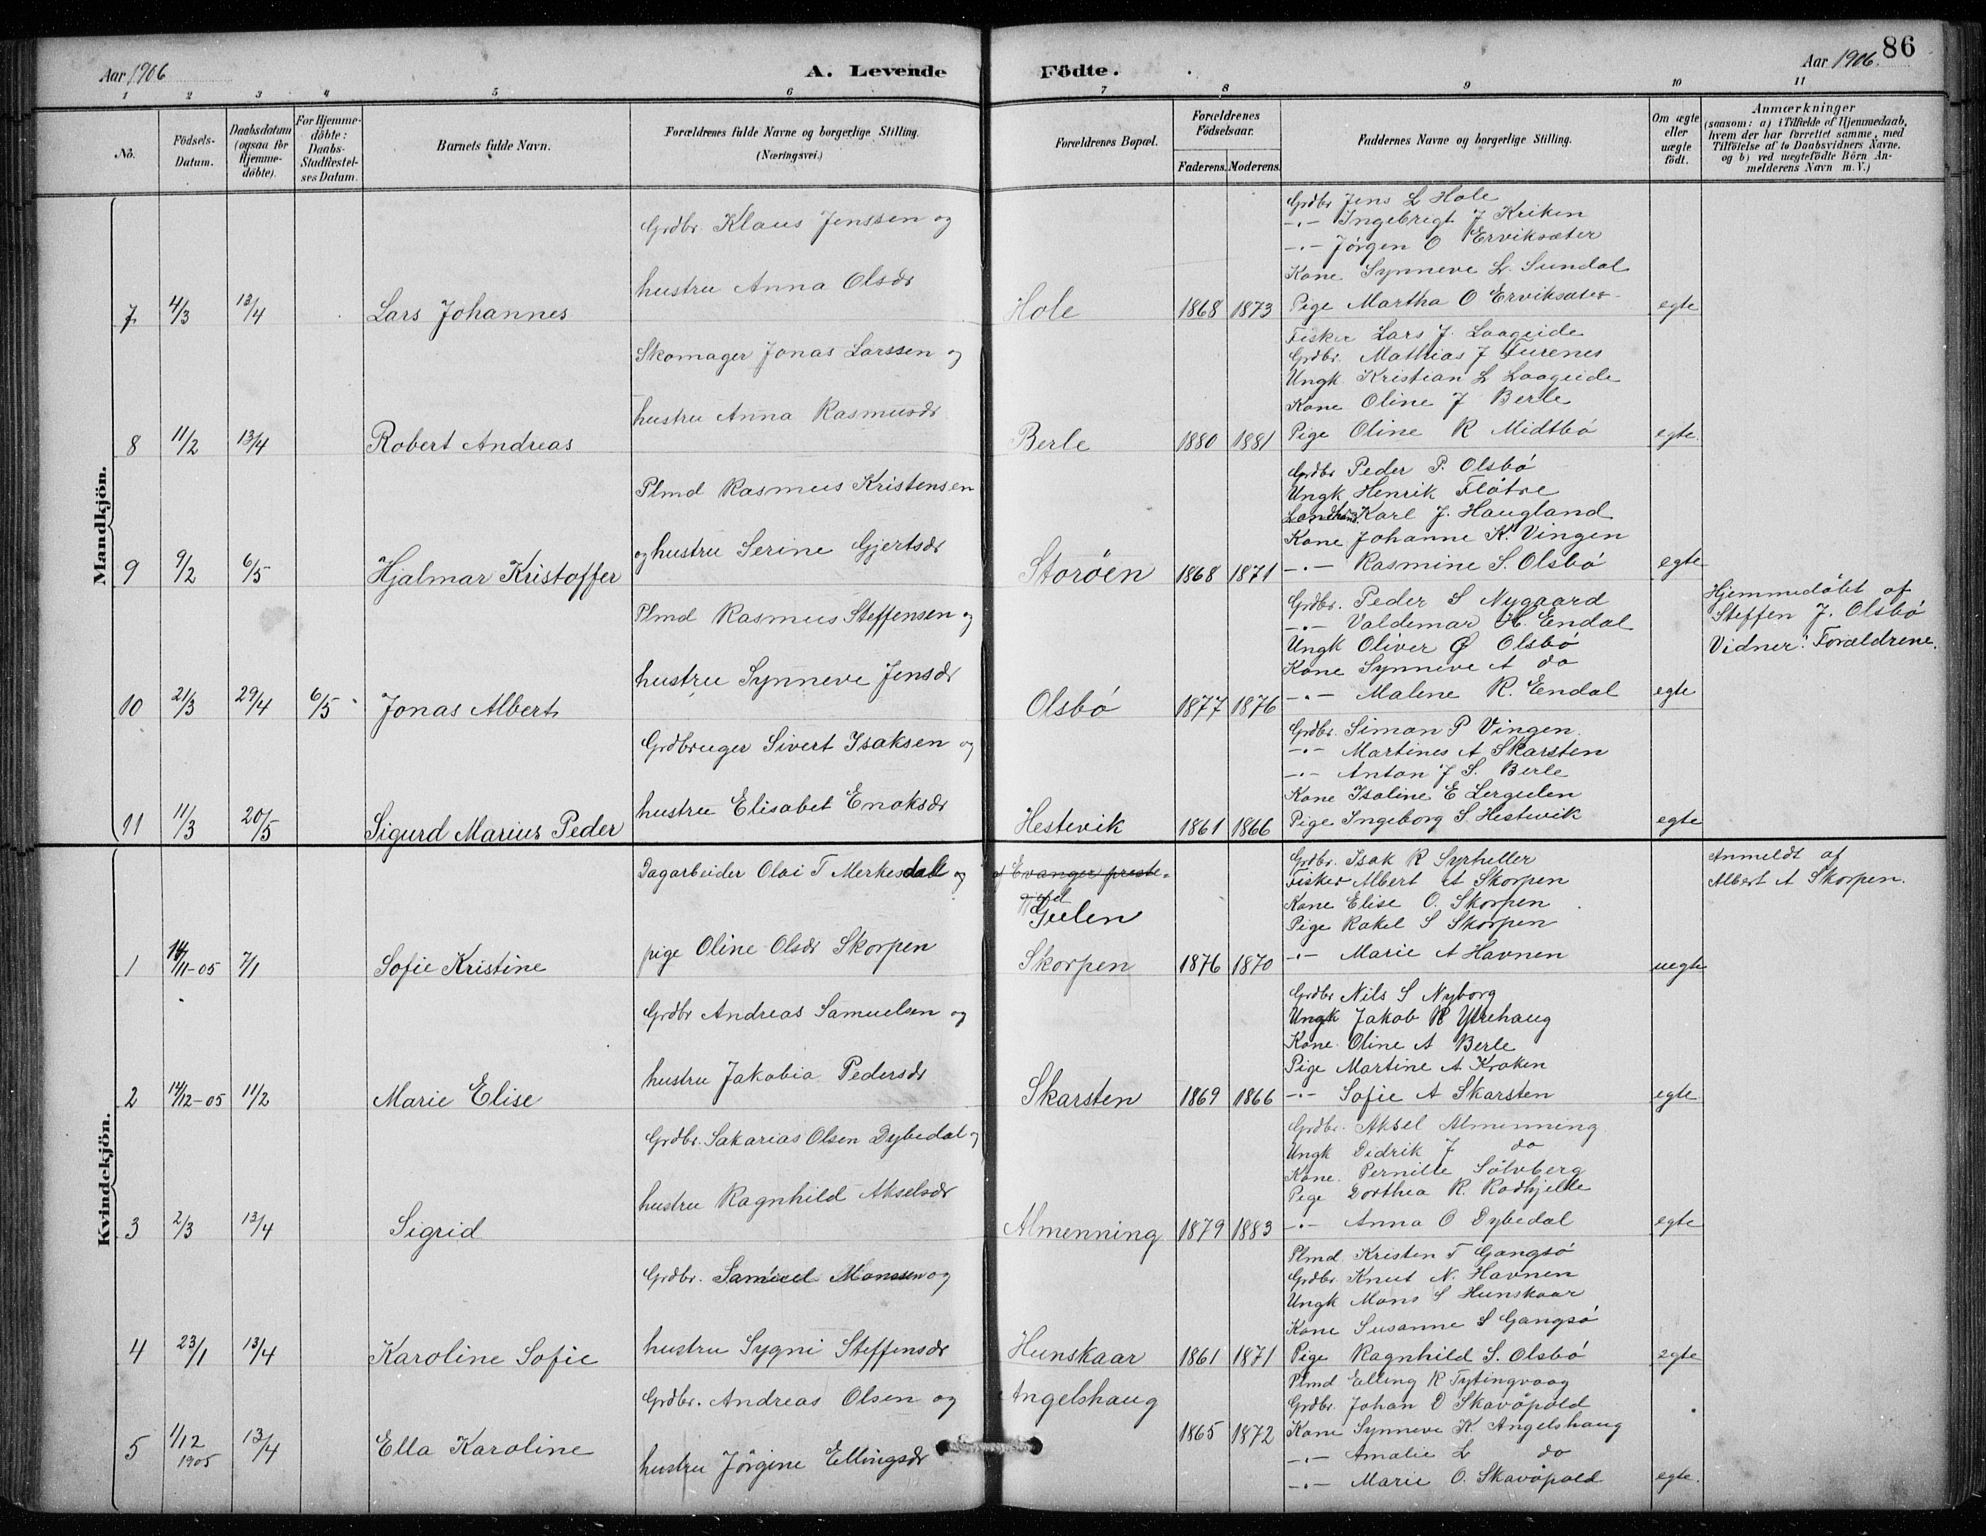 Aar 1906
A. Levende
Födte.
Aar 1906.
86
1 2 3 4 5 6 7 8 9 10 11
No.
Födsels-Datum.
Daabsdatum (ogsaa for Hjemme-döbte).
For Hjemme-döbte: Daabs-Stadfæstel-ses Datum.
Barnets fulde Navn.
Forældrenes fulde Navne og borgerlige Stilling. (Næringsvei.)
Forældrenes Bopæl.
Forældrenes Födselsaar.
Faderens. Moderens.
Faddernes Navne og borgerlige Stilling.
Om ægte eller uægte födt.
Anmærkninger (saasom: a) i Tilfælde af Hjemmedaab, hvem der har forrettet samme, med Tilföielse af to Daabsvidners Navne. og b) ved uægtefödte Börn An-melderens Navn m. V.)
Mandkjön.
7 4/3 13/4 Lars Johannes
Grdbr. Klaus Jenssen og
hustru Anna Olsdr
Hole 1868 1873
Grdbr Jens L Hole
-"- Ingebregt J Kriken
-"- Jørgen O Erviksæter
Kone Synneve L. Sundal
Pige Martha O Erviksæter
egte
8 11/2 13/4 Robert Andreas
Skomager Jonas Larssen og
hustru Anna Rasmusdr
Berle 1880 1881
Fisker Lars J. Laageide
Grdbr. Mathias J Furenes
Ungk Kristian L Laageide
Kone Oline J Berle
Pige Oline R Midtbö
egte.
9 9/2 6/5 Hjalmar Kristoffer
Plmd Rasmus Kristensen
og hustru Serine Gjertsdr
Storöen 1868 1871
Grdbr Peder P. Olsbö
Ungk Henrik Flötre
Karl J. Haugland
Kone Johanne K. Vingen
-"- Rasmine S. Olsbö
egte
10 21/3 29/4 6/5 Jonas Albert
Plmd Rasmus Steffensen og
hustru Synneve Jensdr
Olsbö 1877 1876
Grdbr. Peder S Nygaard
-"- Valdemar H. Endal
Ungk Oliver Ø Olsbö
Kone Synneve A do
-"- Malene R. Endal
egte
Hjemmedöbt af
Steffen J. Olsbö
Vidner: Forældrene.
11 11/3 20/5 Sigurd Marius Peder
Grdbruger Sivert Isaksen og
hustru Elisabet Enoksdr
Hestevik 1861 1866
Grdbr. Simon P Vingen.
-"- Martines A Skarsten
-"- Anton J S. Berle
Kone Isoline E Lergulen
Pige Ingeborg S. Hestevik
egte
Kvindekjön.
1 14/11-05 7/1 Sofie Kristine
Dagarbeider Olai T Merkesdall og
pige Oline Olsdr Skorpen
af Evanger præste-
gjeld
Gulen
Skorpen 1876 1870
Grdbr. Isak R Sørheller
Fisker Albert A Skorpen
Kone Elise O. Skorpen
Pige Rakel S Skorpen
-"- Marie A Havnen
uegte
Anmeldt af
Albert A Skorpen.
2 14/12-05 11/2 Marie Elise
Grdbr Andreas Samuelsen og
hustru Jakobia Pedersdr
Skarsten 1869 1866
Grdbr Nils S Nyborg
Ungk Jakob R Ytrehaug
Kone Oline A Berle
Pige Martine A Kroken
-"- Sofie A Skarsten
egte
3 2/3 13/4 Sigrid
Grdbr. Sakarias Olsen Dybedal og
hustru Ragnhild Akselsdr
Almenning 1879 1883
Grdbr. Aksel Almenning
Ungk Didrik J do
Kone. Pernille Sölvberg
Pige Dorthea R. Rödhjelle
-"- Anna O Dybedal
egte
4 23/1 13/4 Karoline Sofie
Grdbr. Samuel Monssen og
hustru Sygni Steffensdr
Hunskaar 1861 1871
Plmd Kristen T Gangsö
Grdbr. Knut N. Havnen
Ungk Mons S Hunskaar
Kone Susanne S Gangsö
Pige Ragnhild S. Olsbö
egte
5 1/12 1905 13/4 Ella Karoline
Grdbr. Andreas Olsen og
hustru Jørgine Ellingsdr
Angelshaug
1865 1872
Plmd Elling R Tytingvaag
Grdbr. Johan D Skavöpold
Kone Synneve K. Angelshaug
-"- Amalie L do
-"- Marie O. Skavöpold
egte.